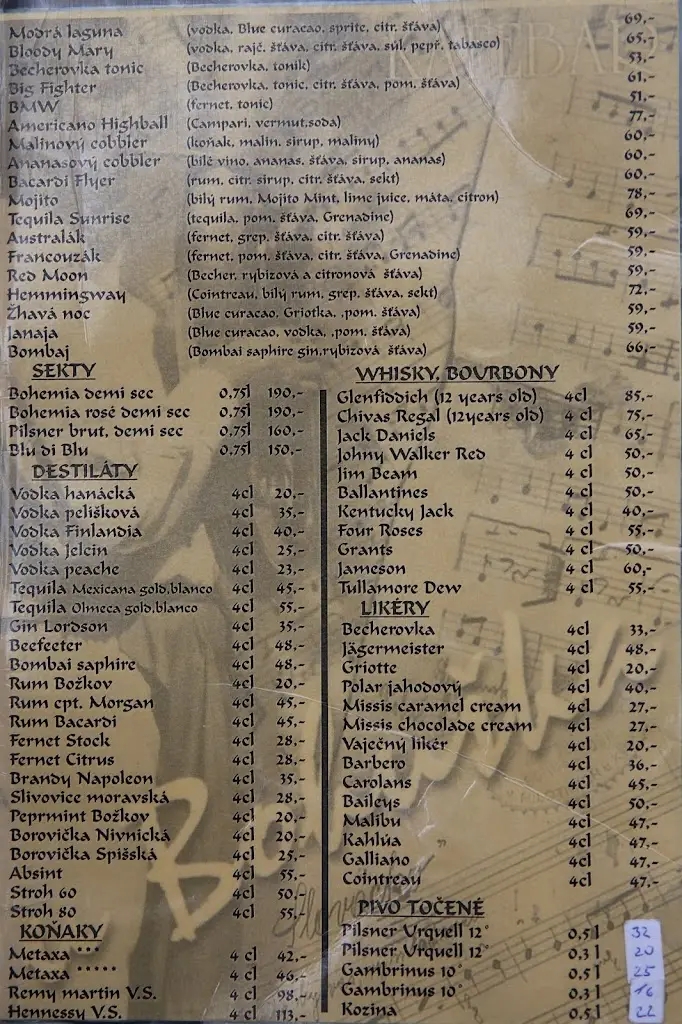 Modrá laguna (vodka, Blue curacao, sprite, citr. šťáva) 69,-
Bloody Mary (vodka, rajč. šťáva, citr. šťáva, sůl, pepř, tabasco) 65,-
Becherovka tonic (Becherovka, tonik) 53,-
Big Fighter (Becherovka, tonic, citr. šťáva, pom. šťáva) 61,-
BMW (fernet, tonic) 51,-
Americano Highball (Campari, vermut,soda) 77,-
Malinový cobbler (koňak, malin. sirup, maliny) 60,-
Ananasový cobbler (bílé víno, ananas. šťáva, sirup, ananas) 60,-
Bacardi Flyer (rum, citr. sirup, citr. šťáva, sekt) 60,-
Mojito (bílý rum, Mojito Mint, lime juice, máta, citron) 78,-
Tequila Sunrise (tequila, pom. šťáva, Grenadine) 69,-
Australák (fernet, grep. šťáva, citr. šťáva) 59,-
Francouzák (fernet, pom. šťáva, citr. šťáva, Grenadine) 59,-
Red Moon (Becher, rybizová a citronová šťáva) 59,-
Hemmingway (Cointreau, bílý rum, grep. šťáva, sekt) 72,-
Žhavá noc (Blue curacao, Griotka, ,pom. šťáva) 59,-
Janaja (Blue curacao, vodka, ,pom. šťáva) 59,-
Bombaj (Bombai saphire gin,rybizová šťáva) 66,-
SEKTY
Bohemia demi sec 0,75l 190,-
Bohemia rosé demi sec 0,75l 190,-
Pilsner brut, demi sec 0,75l 160,-
Blu di Blu 0,75l 150,-
DESTILÁTY
Vodka hanácká 4cl 20,-
Vodka pelíšková 4cl 35,-
Vodka Finlandia 4cl 40,-
Vodka Jelcin 4cl 25,-
Vodka peache 4cl 23,-
Tequila Mexicana gold,blanco 4cl 45,-
Tequila Olmeca gold,blanco 4cl 55,-
Gin Lordson 4cl 35,-
Beefeeter 4cl 48,-
Bombai saphire 4cl 48,-
Rum Božkov 4cl 20,-
Rum cpt. Morgan 4cl 45,-
Rum Bacardi 4cl 45,-
Fernet Stock 4cl 28,-
Fernet Citrus 4cl 28,-
Brandy Napoleon 4cl 35,-
Slivovice moravská 4cl 28,-
Peprmint Božkov 4cl 20,-
Borovička Nivnická 4cl 20,-
Borovička Spišská 4cl 25,-
Absint 4cl 55,-
Stroh 60 4cl 50,-
Stroh 80 4cl 55,-
KOŇAKY
Metaxa *** 4 cl 42,-
Metaxa ***** 4 cl 46,-
Remy martin V.S. 4 cl 98,-
Hennessy V.S. 4 cl 113,-
WHISKY, BOURBONY
Glenfiddich (12 years old) 4cl 85,-
Chivas Regal (12years old) 4 cl 75,-
Jack Daniels 4 cl 65,-
Johny Walker Red 4 cl 50,-
Jim Beam 4 cl 50,-
Ballantines 4 cl 50,-
Kentucky Jack 4 cl 40,-
Four Roses 4 cl 55,-
Grants 4 cl 50,-
Jameson 4 cl 60,-
Tullamore Dew 4 cl 55,-
LIKÉRY
Becherovka 4cl 33,-
Jägermeister 4cl 48,-
Griotte 4cl 20,-
Polar jahodový 4cl 40,-
Missis caramel cream 4cl 27,-
Missis chocolade cream 4cl 27,-
Vaječný likér 4cl 20,-
Barbero 4cl 36,-
Carolans 4cl 45,-
Baileys 4cl 50,-
Malibu 4cl 47,-
Kahlúa 4cl 47,-
Galliano 4cl 47,-
Cointreau 4cl 47,-
PIVO TOČENÉ
Pilsner Urquell 12° 0,5 l 32
Pilsner Urquell 12° 0,3 l 20
Gambrinus 10° 0,5 l 25
Gambrinus 10° 0,3 l 16
Kozina 0,5 l 22